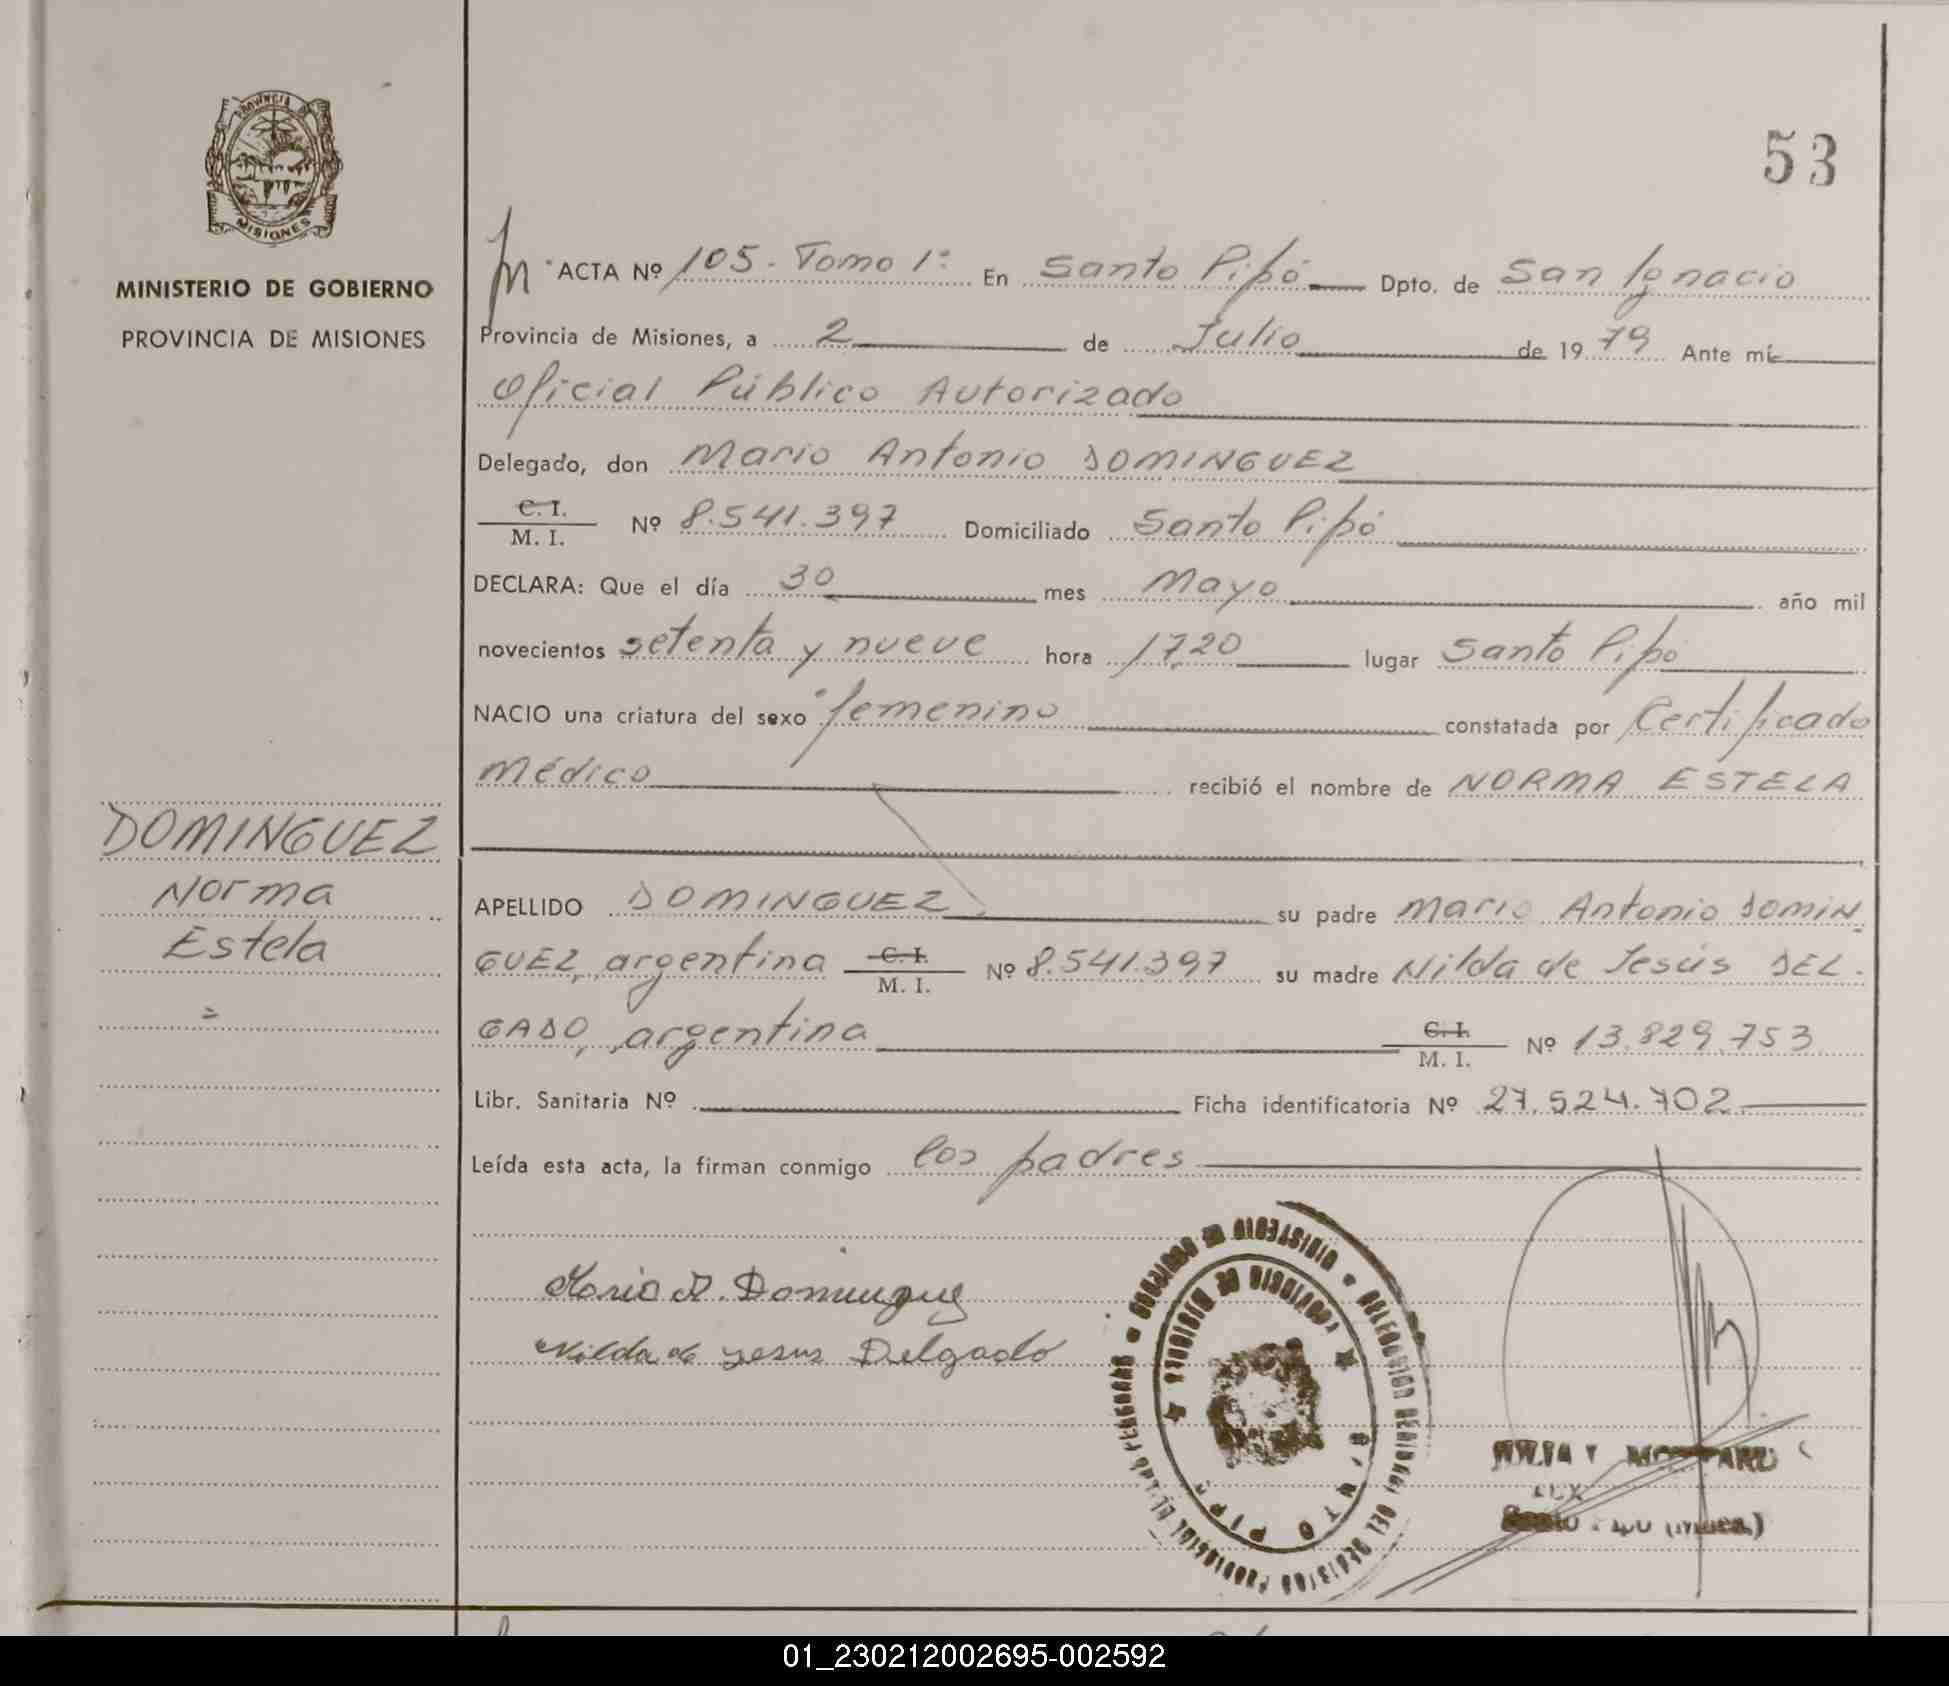 53
PROVINCIA DE
MISIONES
MINISTERIO DE GOBIERNO
PROVINCIA DE MISIONES
ACTA Nº 105. Tomo 1º En Santo Pipó Dpto. de San Ignacio
Provincia de Misiones, a 2 de Julio de 1979 Ante mí
Oficial Público Autorizado
Delegado, don Mario Antonio DOMINGUEZ
C. I.
M. I. Nº 8.541.397 Domiciliado Santo Pipó
DECLARA: Que el día 30 mes Mayo año mil
novecientos setenta y nueve hora 17,20 lugar Santo Pipó
NACIO una criatura del sexo femenino constatada por Certificado
Médico recibió el nombre de NORMA ESTELA
DOMINGUEZ
Norma
Estela
=
APELLIDO DOMINGUEZ su padre Mario Antonio DOMIN
GUEZ, argentina C. I. M. I. Nº 8.541.397 su madre Nilda de Jesús DEL-
GADO, argentina C. I. M. I. Nº 13.829.753
Libr. Sanitaria Nº Ficha identificatoria Nº 27.524.702
Leída esta acta, la firman conmigo los padres
Mario A. Dominguez
Nilda de Jesus Delgado
MINISTERIO DE GOBIERNO
PROVINCIA DE MISIONES
01_230212002695-002592